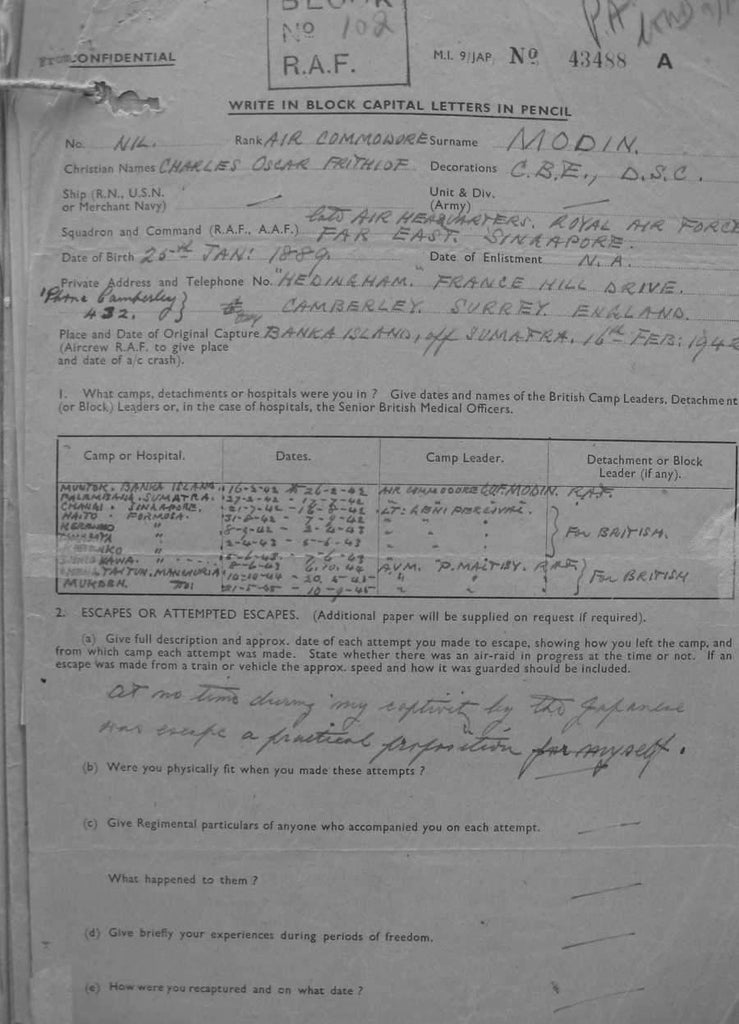 BLOCK
Nº 102
R.A.F.
P.A.
CONFIDENTIAL
M.I. 9/JAP. Nº 43488 A
WRITE IN BLOCK CAPITAL LETTERS IN PENCIL
No. NIL. Rank AIR COMMODORE Surname MODIN.
Christian Names CHARLES OSCAR FRITHIOF Decorations C.B.E., D.S.C.
Ship (R.N., U.S.N. or Merchant Navy) — Unit & Div. (Army) —
late AIR HEADQUARTERS. ROYAL AIR FORCE
Squadron and Command (R.A.F., A.A.F.) FAR EAST. SINGAPORE.
Date of Birth 25th JAN: 1889. Date of Enlistment N.A.
Private Address and Telephone No. "HEDINGHAM." FRANCE HILL DRIVE.
'Phone Camberley 432. } CAMBERLEY. SURREY. ENGLAND.
Place and Date of Original Capture BANKA ISLAND, off SUMATRA. 16th FEB: 1942
(Aircrew R.A.F. to give place
and date of a/c crash).
1. What camps, detachments or hospitals were you in ? Give dates and names of the British Camp Leaders, Detachment
(or Block) Leaders or, in the case of hospitals, the Senior British Medical Officers.
Camp or Hospital. Dates. Camp Leader. Detachment or Block Leader (if any).
MUNTOK. BANKA ISLAND. 16-2-42 26-2-42 AIR COMMODORE MODIN. R.A.F.
PALEMBANG. SUMATRA. 27-2-42 - 17-7-42
CHANGI. SINGAPORE. 21-7-42 - 18-8-42 LT: GEN: PERCIVAL.
HAITO. FORMOSA. 31-8-42 - 7-9-42 " "
" 8-9-42 - 2-4-43 " " } For BRITISH.
" 2-4-43 - 5-6-43 " "
" 5-6-43 - 7-6-43
" 8-6-43 A.V.M. P. MALTBY. R.A.F.
MANCHURIA 10-10-44 - 20-5-45 " " } For BRITISH
MUKDEN. 21-5-45 - 10-9-45 " "
2. ESCAPES OR ATTEMPTED ESCAPES. (Additional paper will be supplied on request if required).
(a) Give full description and approx. date of each attempt you made to escape, showing how you left the camp, and
from which camp each attempt was made. State whether there was an air-raid in progress at the time or not. If an
escape was made from a train or vehicle the approx. speed and how it was guarded should be included.
At no time during my captivity by the Japanese
was escape a practical proposition for myself.
(b) Were you physically fit when you made these attempts ?
(c) Give Regimental particulars of anyone who accompanied you on each attempt. —
What happened to them ? —
(d) Give briefly your experiences during periods of freedom. —
(e) How were you recaptured and on what date ? —